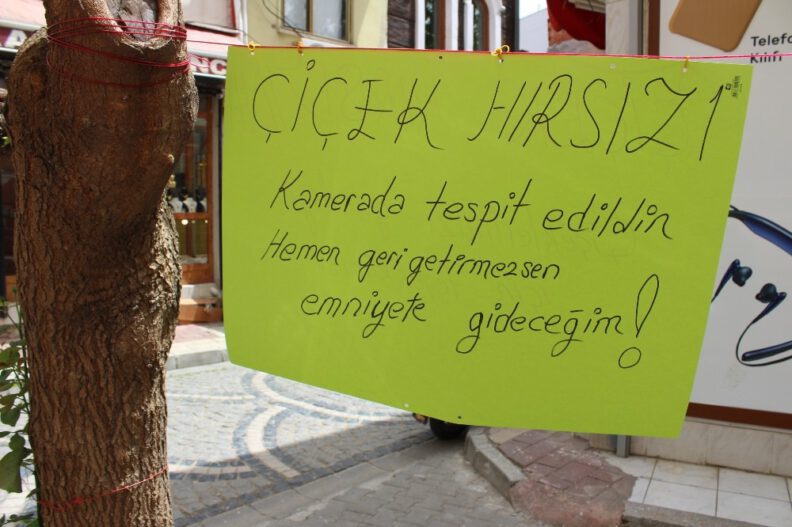 ÇİÇEK HIRSIZI
Kamerada tespit edildin
Hemen geri getirmezsen
emniyete gideceğim!
Kılıfı